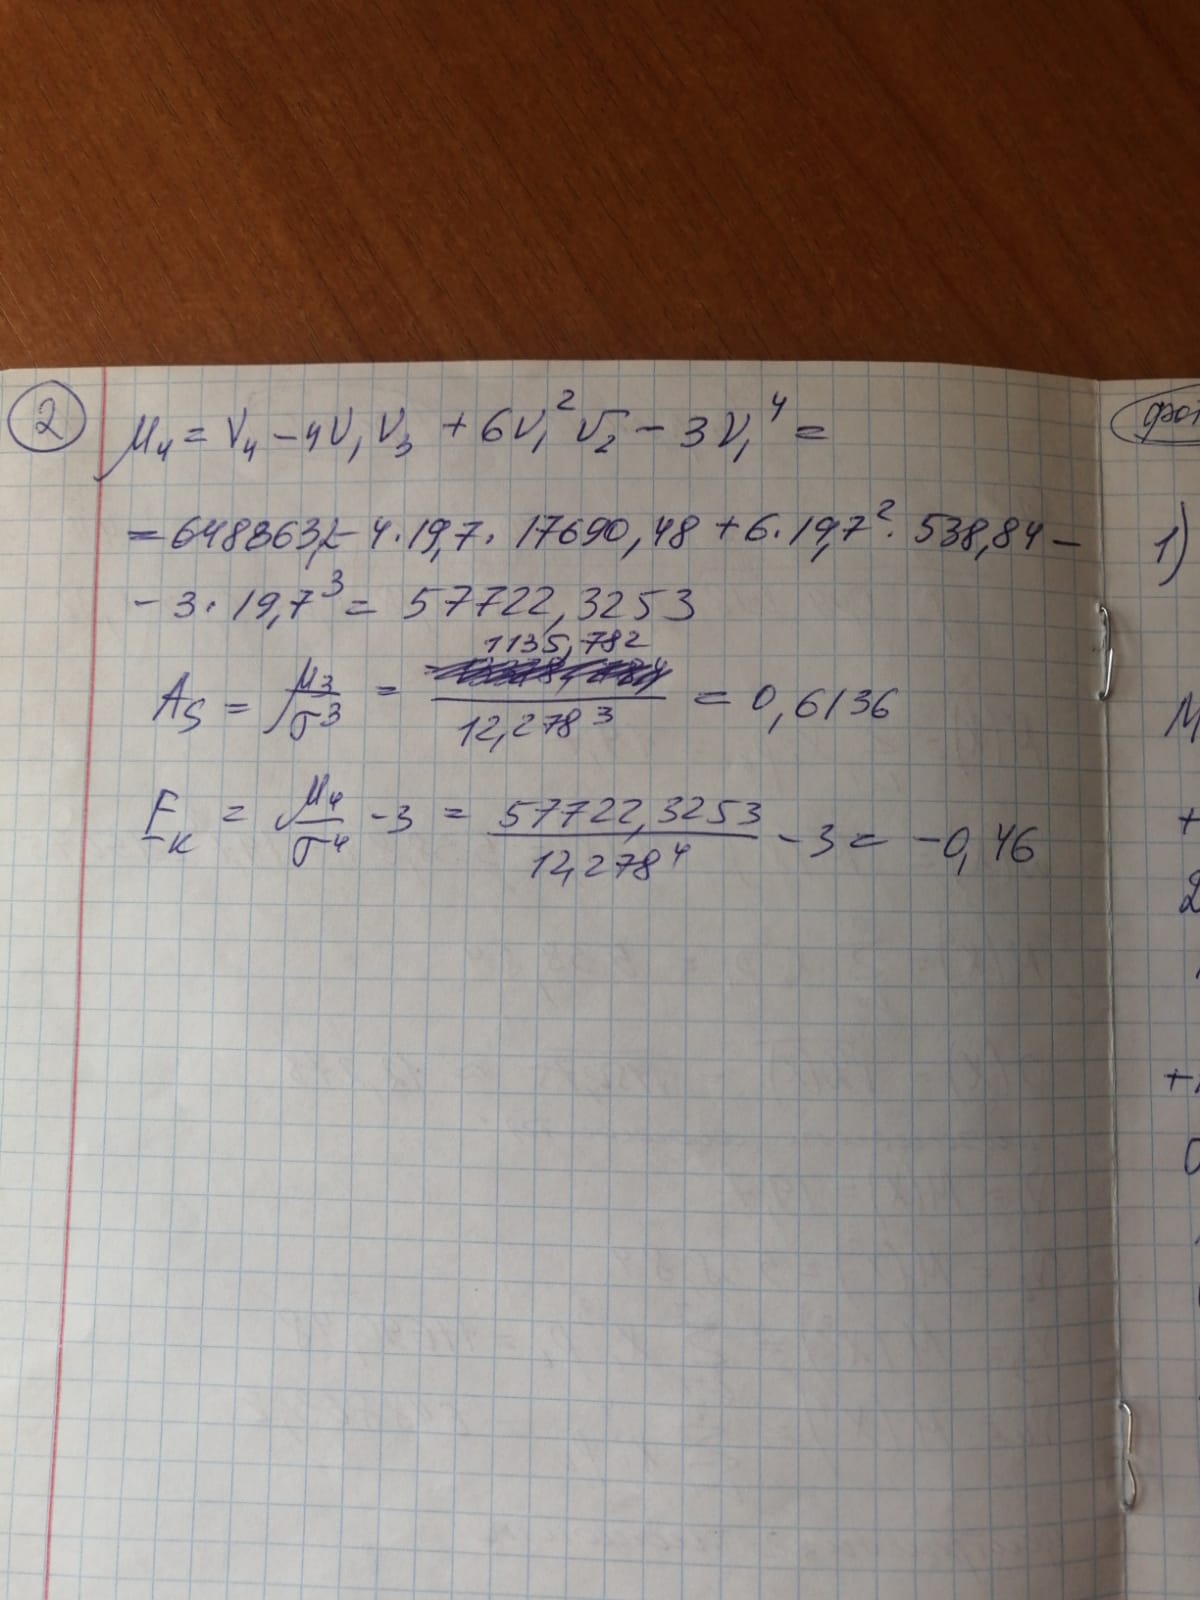 2
μ₄ = ν₄ - 4ν₁ν₃ + 6ν₁²ν₂ - 3ν₁⁴ =
= 648863,2 - 4·19,7·17690,48 + 6·19,7²·538,84 -
- 3·19,7³ = 57722,3253
As = μ₃/σ³ = 1135,782/12,278³ = 0,6136
Eк = μ₄/σ⁴ - 3 = 57722,3253/12,278⁴ - 3 = -0,46
1)